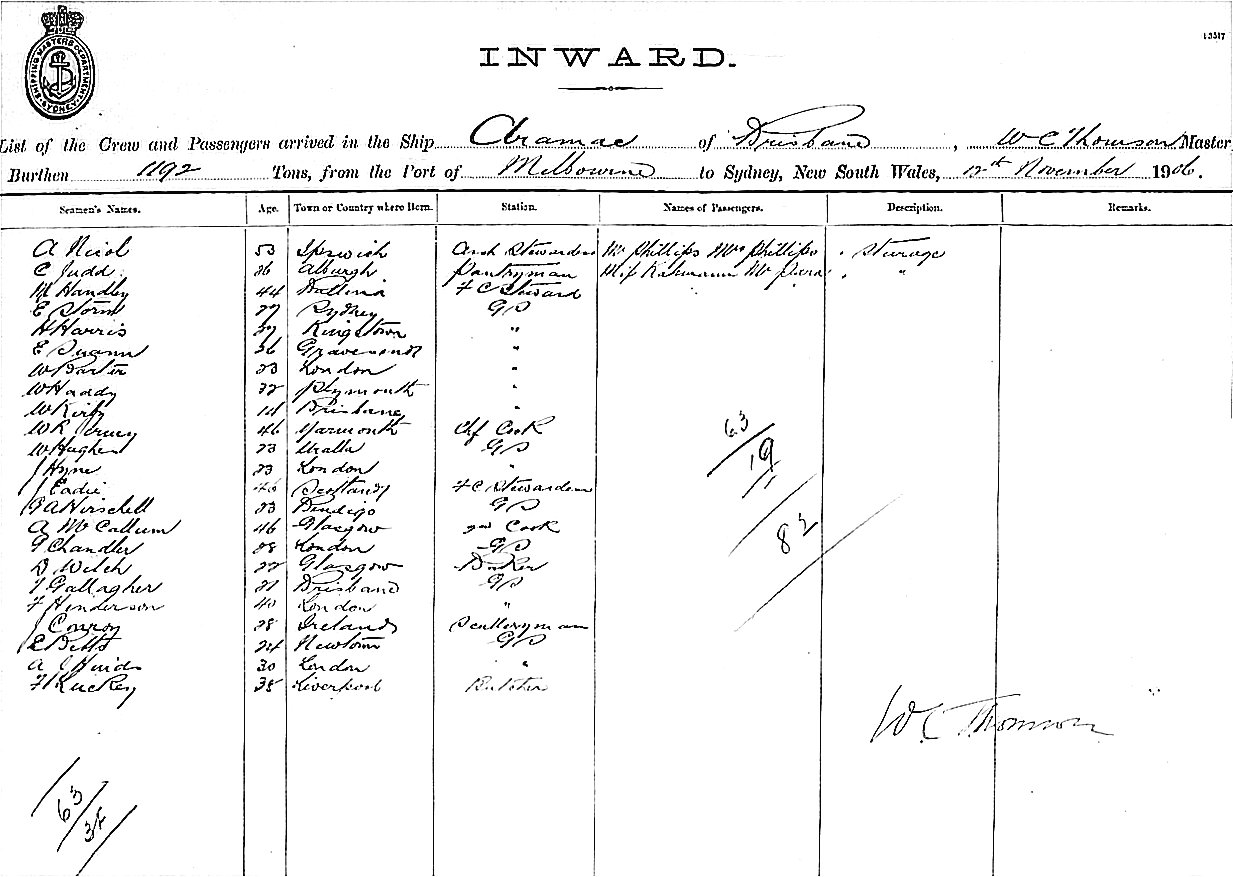 SHIPPING MASTERS DEPARTMENT SYDNEY
13317
INWARD.
List of the Crew and Passengers arrived in the Ship Aramac of Brisbane, W C Thomson Master
Burthen 1192 Tons, from the Port of Melbourne to Sydney, New South Wales, 12th November 1906.
Seamen's Names. Age. Town or Country where Born. Station. Names of Passengers. Description. Remarks.
A Nicol 53 Ipswich Steward Mr Phillips Mrs Phillips Steerage
C Judd 26 Pantryman Miss Mr "
M Handley 44 F C Steward
E Storm 27 Sydney GS
H Harris 37 Kingstown "
E Suann 36 Gravesend "
W Barton 23 London "
W Haddy 32 Plymouth "
W Kirby Brisbane "
W R 46 Yarmouth Chf Cook
W Hughes 23 Uralla GS
J Hyne 23 London "
J Eadie 46 Scotland F C Stewardess
G A Hirschell 23 Bendigo GS
A McCallum 46 Glasgow 2nd Cook
G Chandler 28 London GS
D Welch 22 Glasgow Baker
T Gallagher 21 Brisbane GS
F Henderson 40 London "
J Conroy 28 Ireland Sculleryman
E Betts 24 Newtown GS
A J Hinds 30 London "
F Luckey 38 Liverpool Butcher
63
19
82
W C Thomson
63